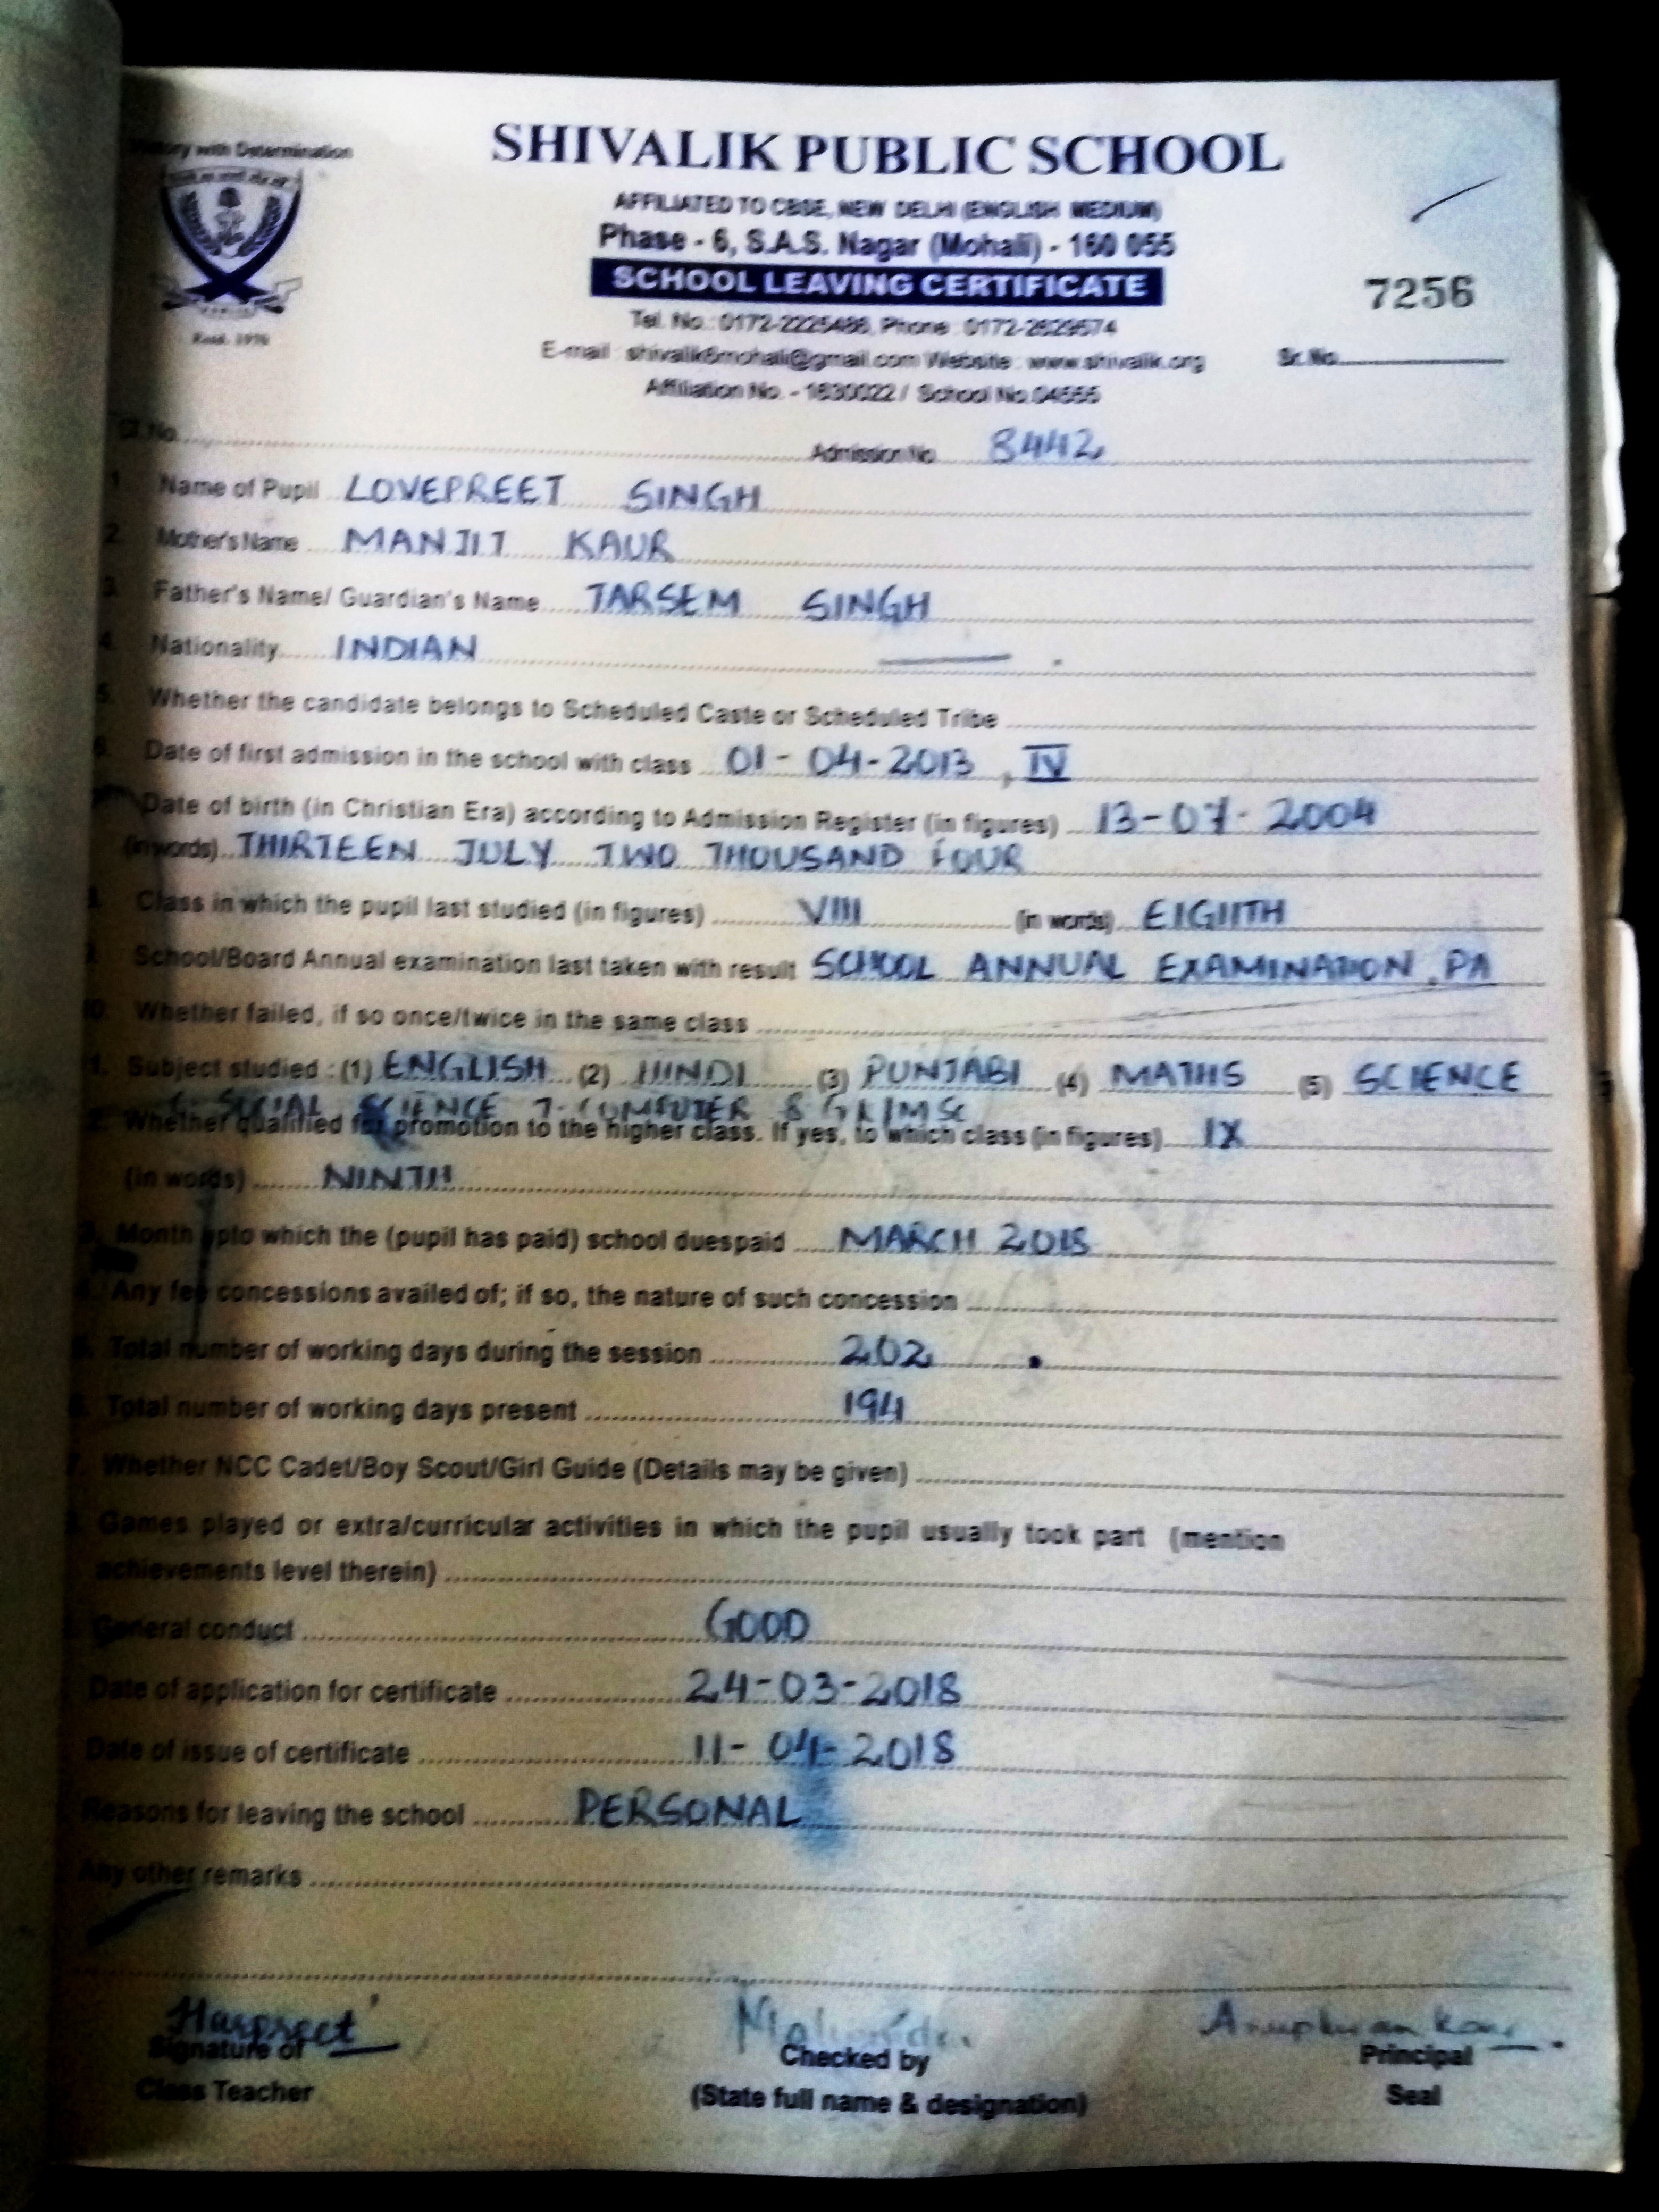 with Determination
SHIVALIK PUBLIC SCHOOL
AFFILIATED TO CBSE, NEW DELHI (ENGLISH MEDIUM)
Phase - 6, S.A.S. Nagar (Mohali) - 160 055
SCHOOL LEAVING CERTIFICATE
7256
Tel. No.: 0172-2225486, Phone : 0172-2629574
E-mail : shivalik6mohali@gmail.com Website : www.shivalik.org
Sr. No.
Affiliation No. - 1630022 / School No.04555
Admission No. 8442
1. Name of Pupil LOVEPREET SINGH
2. Mother's Name MANJIT KAUR
3. Father's Name/ Guardian's Name TARSEM SINGH
4. Nationality INDIAN
5. Whether the candidate belongs to Scheduled Caste or Scheduled Tribe
6. Date of first admission in the school with class 01-04-2013, IV
Date of birth (in Christian Era) according to Admission Register (in figures) 13-07-2004
(in words) THIRTEEN JULY TWO THOUSAND FOUR
Class in which the pupil last studied (in figures) VIII (in words) EIGHTH
9. School/Board Annual examination last taken with result SCHOOL ANNUAL EXAMINATION, PA
10. Whether failed, if so once/twice in the same class
1. Subject studied : (1) ENGLISH (2) HINDI (3) PUNJABI (4) MATHS (5) SCIENCE
6. SOCIAL SCIENCE 7. COMPUTER 8
2. Whether qualified for promotion to the higher class. If yes, to which class (in figures) IX
(in words) NINTH
Month upto which the (pupil has paid) school duespaid MARCH 2018
Any fee concessions availed of; if so, the nature of such concession
5. Total number of working days during the session 202
6. Total number of working days present 194
7. Whether NCC Cadet/Boy Scout/Girl Guide (Details may be given)
Games played or extra/curricular activities in which the pupil usually took part (mention
achievements level therein)
General conduct GOOD
Date of application for certificate 24-03-2018
Date of issue of certificate 11-04-2018
Reasons for leaving the school PERSONAL
Any other remarks
Harpreet
Signature of
Class Teacher
Checked by
(State full name & designation)
Principal
Seal